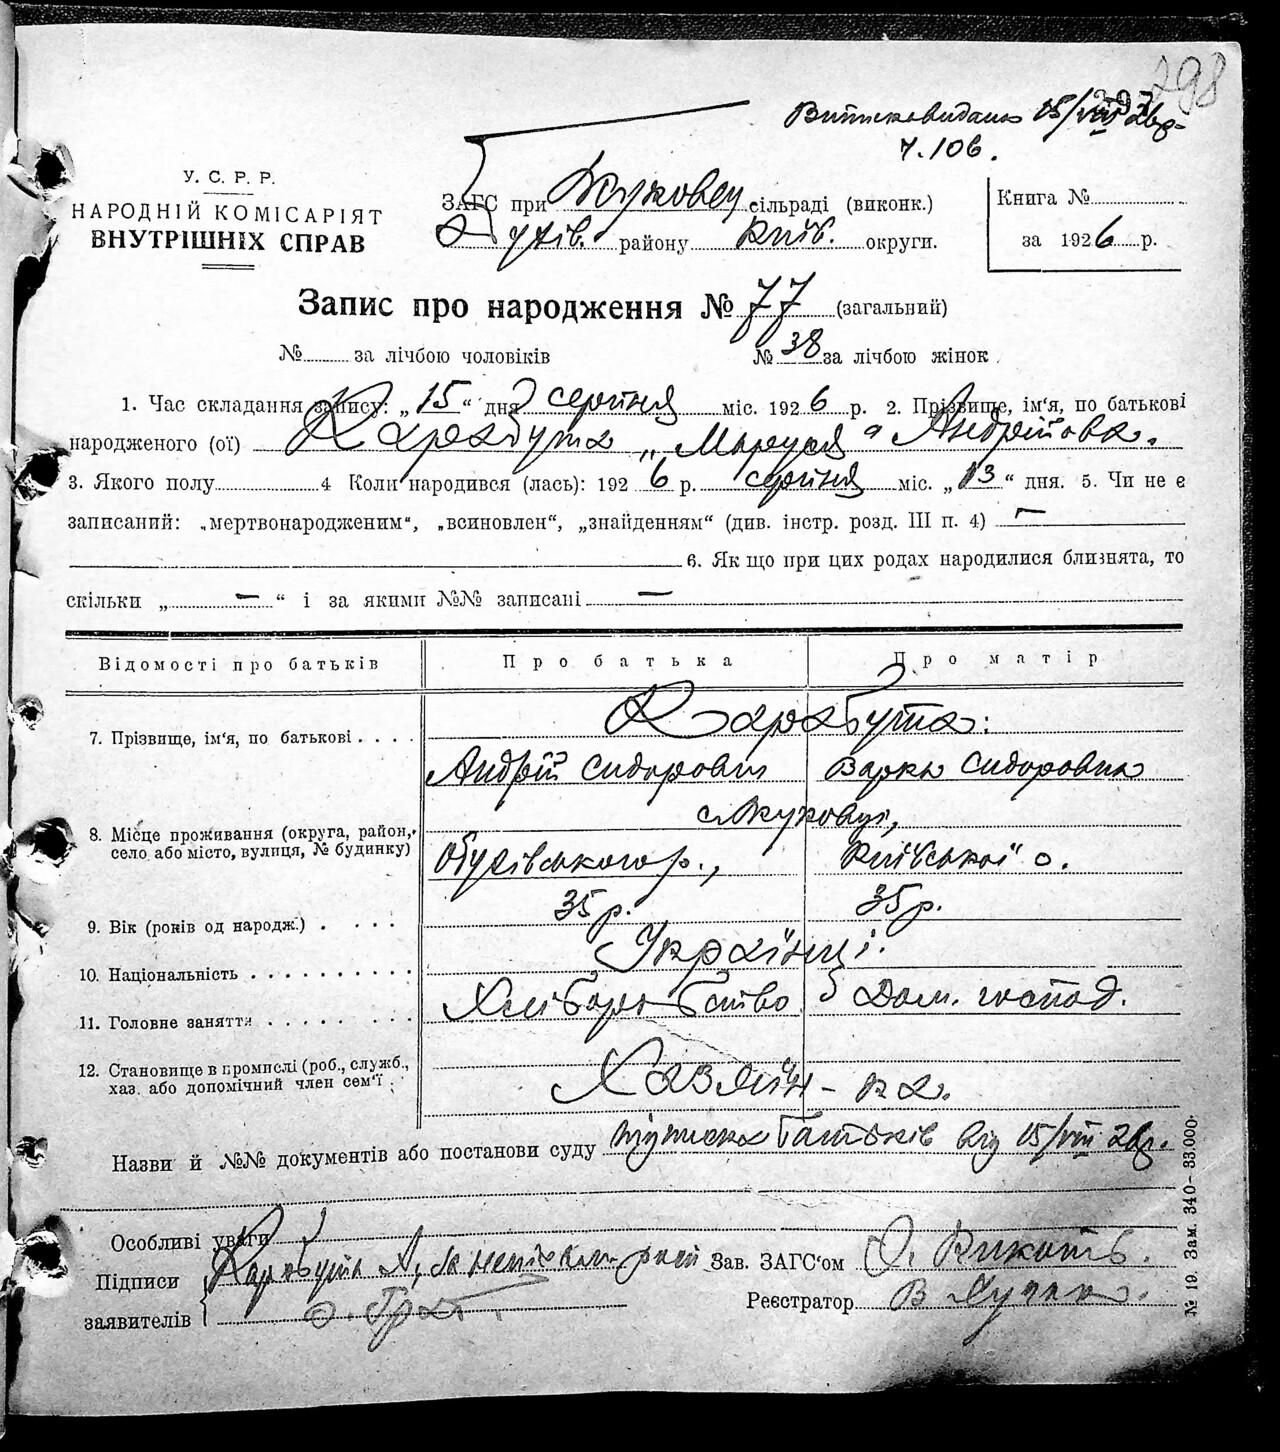 298
Виписка видана 15/VIII 26р.
ч. 106.
У. С. Р. Р.
НАРОДНІЙ КОМІСАРІЯТ
ВНУТРІШНІХ СПРАВ
ЗАГС при Жуковец сільраді (виконк.)
Обухів. району Київ. округи.
Книга №
за 1926 р.
Запис про народження № 77 (загальний)
№ за лічбою чоловіків № 38 за лічбою жінок
1. Час складання запису: „15“ дня серпня міс. 1926 р. 2. Прізвище, ім'я, по батькові
народженого (ої) Карабута „Маруся“ Андріївна.
3. Якого полу 4 Коли народився (лась): 1926 р. серпня міс. „13“ дня. 5. Чи не є
записаний: „мертвонародженим“, „всиновлен“, „знайденням“ (див. інстр. розд. III п. 4) —
6. Як що при цих родах народилися близнята, то
скільки „ — “ і за якими №№ записані —
Відомості про батьків Про батька Про матір
Карабута:
7. Прізвище, ім'я, по батькові . . . .
Андрій Сидорович Варка Сидоровна
с. Жуковці,
8. Місце проживання (округа, район, село або місто, вулиця, № будинку)
Обухівського р., Київської о.
9. Вік (років од народж.) . . . . 35 р. 35 р.
10. Національність . . . . . . . . . . Українці.
11. Головне заняття . . . . . . . . Хліборобство Дом. господ.
12. Становище в промислі (роб., служб.,
хаз. або допомічний член сем'ї . Хазяїн - ка.
Назви й №№ документів або постанови суду батьків від 15/VIII 26р.
Особливі уваги
Підписи Карабута А, за Зав. ЗАГС'ом О.
заявителів Реєстратор В
№ 19. Зам. 340—33.000.